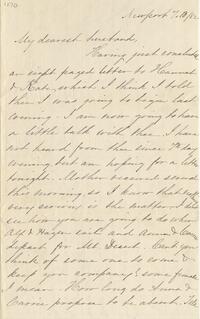 1870
Newport 7/18/82
My dearest husband,
Having just concluded
an eight paged letter to Hannah
& Kate, which I think I told
thee I was going to begin last
evening. I am now going to have
a little talk with thee. I have
not heard from thee since 7th day
evening but am hoping for a letter
tonight. Mother received
this morning so I know that nothing
very serious is the matter.
how you are going to do when
Alf & Hagen exits and Anna & Carrie
depart for Mt Desert. Can't you
think of some one to come &
keep you company? some friend
I mean. How long do Anna &
Carrie propose to be absent.